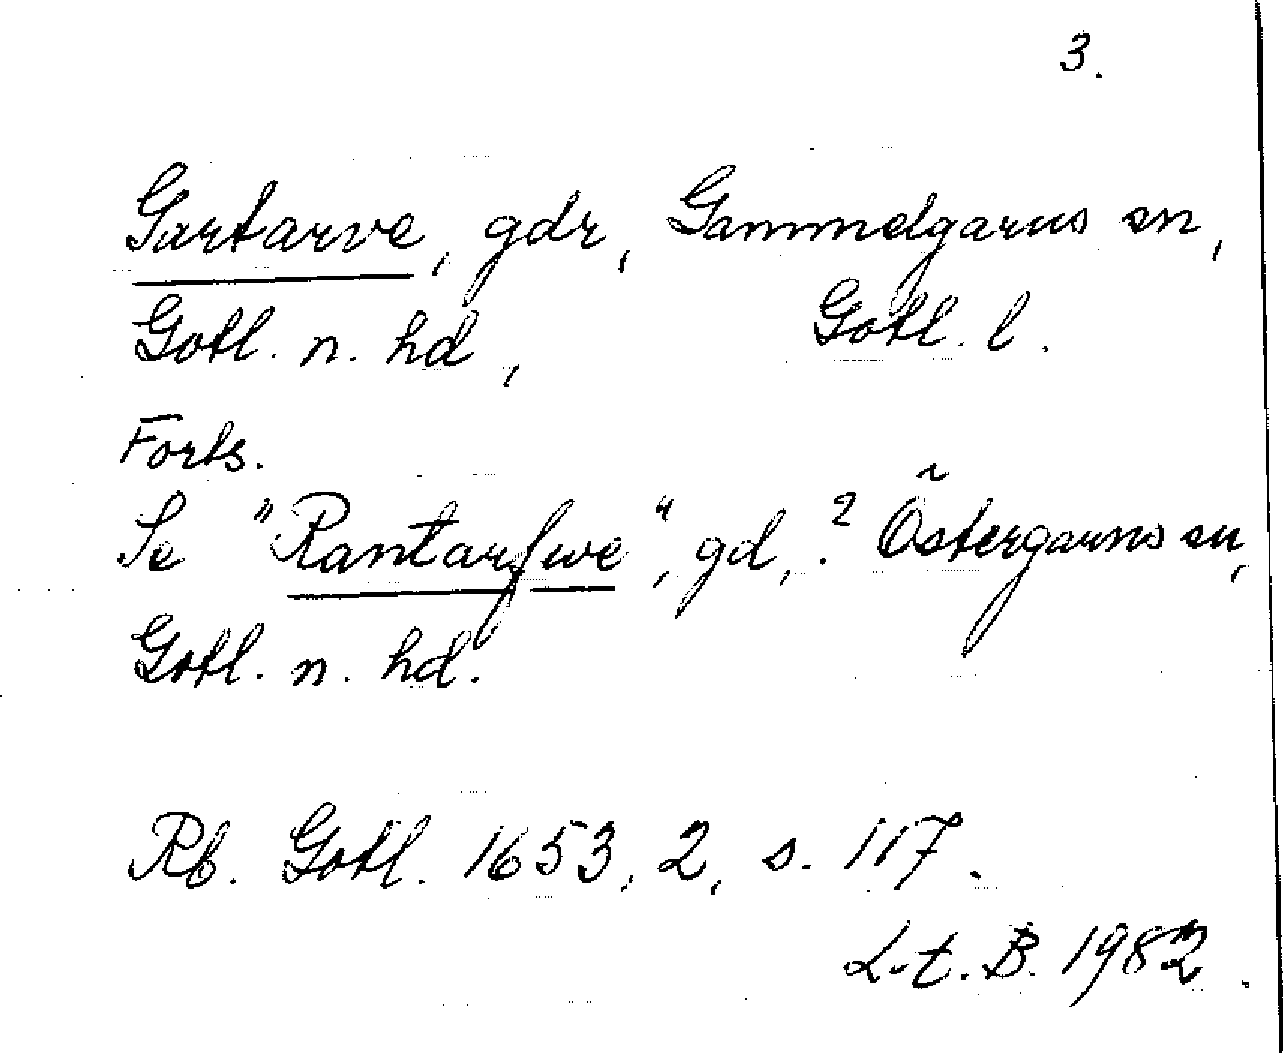 3.
Gartarve, gdr, Gammelgarns sn,
Gotl. n. hd, Gotl. l.
Forts.
Se "Rantarfwe", gd, ? Östergarns sn,
Gotl. n. hd.
Rb. Gotl. 1653, 2, s. 117.
L-t. B. 1982.